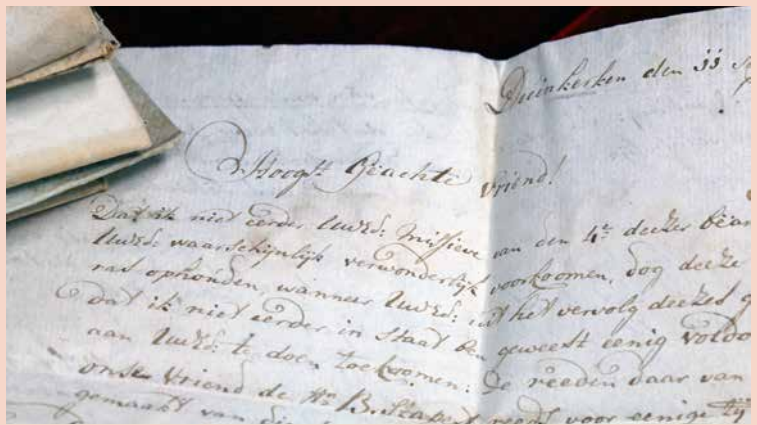 Duinkerken den 11
Hoogst Geachte Vriend!
Dat ik niet eerder UwEd: missieve van den 4e deezer bëan
UwEd: waarschijnlijk verwonderlijk voorkoomen, dog deeze
ras ophouden, wanneer UwEd: uit het vervolg deezes
dat ik niet eerder in staat ben geweest eenig voldo
aan UwEd: te doen toekoomen: De reeden daar van
onse Vriend de Hr voor eenige tij
gemaakt van